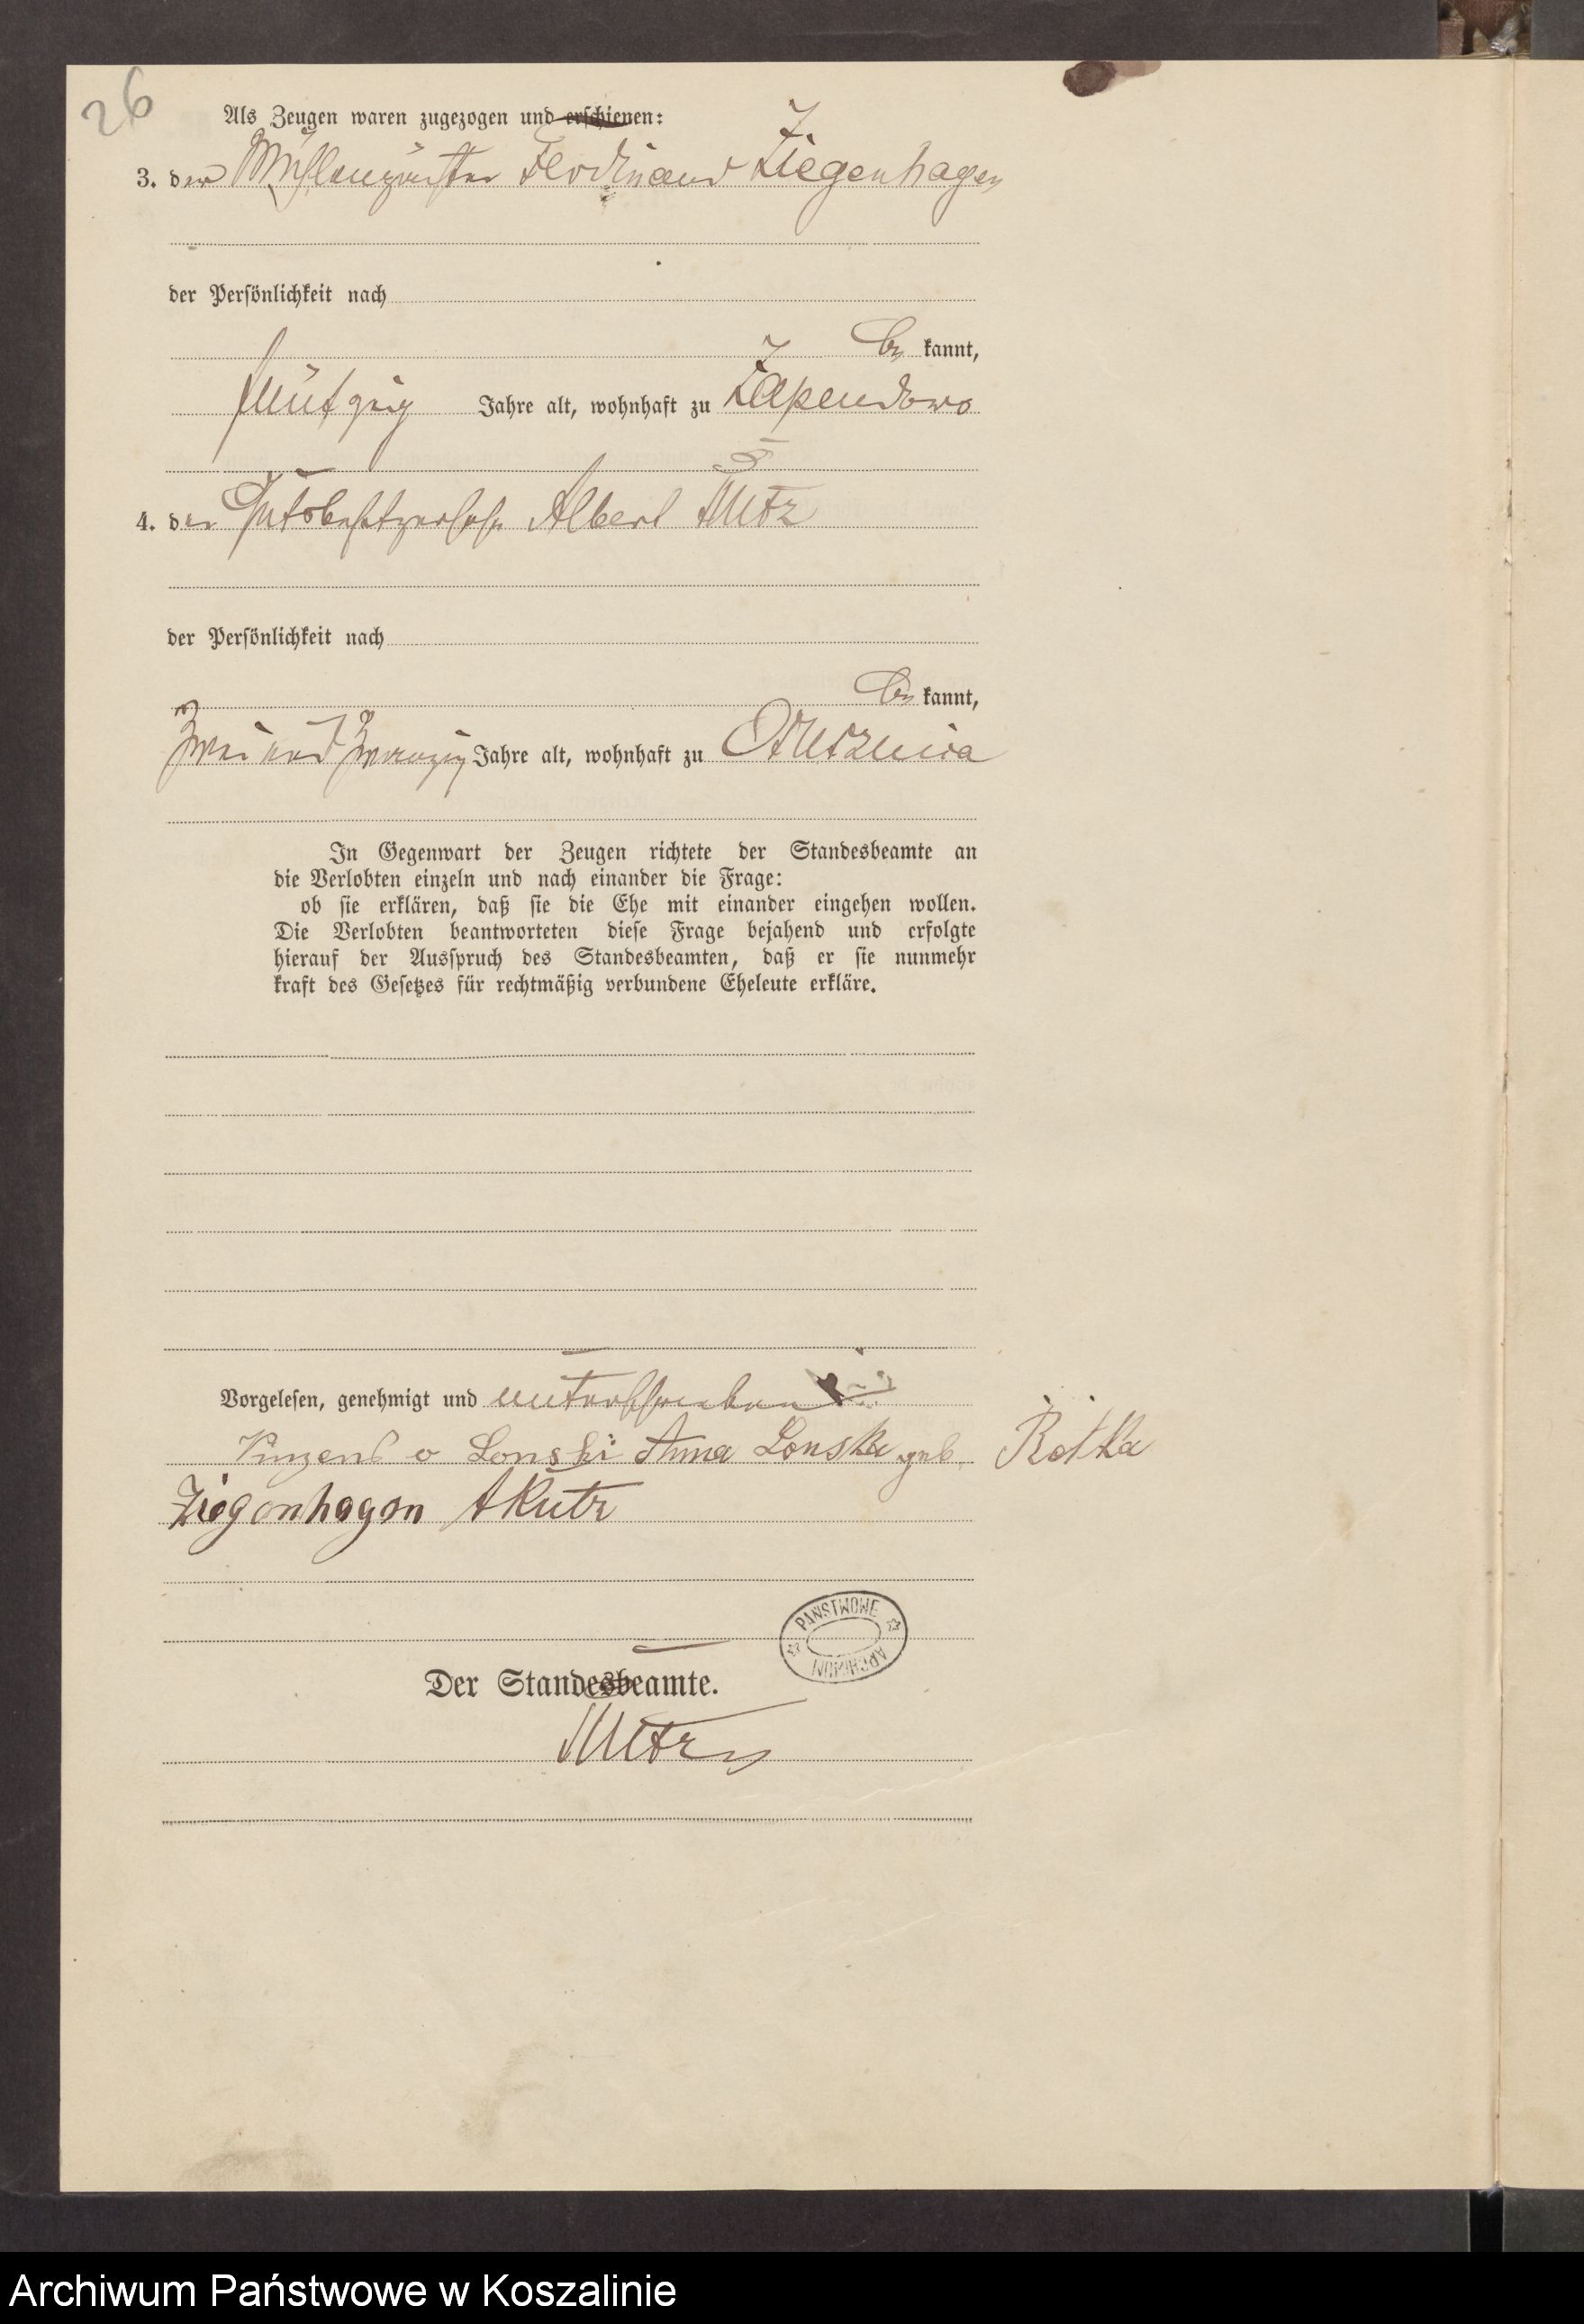 26
Als Zeugen waren zugezogen und erschienen:
3. der Ferdinand Ziegenhagen
der Persönlichkeit nach
be kannt,
fünfzig Jahre alt, wohnhaft zu Zapendowo
4. der Gutsbesitzersohn Albert Kutz
der Persönlichkeit nach
be kannt,
zwei und zwanzig Jahre alt, wohnhaft zu
In Gegenwart der Zeugen richtete der Standesbeamte an
die Verlobten einzeln und nach einander die Frage:
ob sie erklären, daß sie die Ehe mit einander eingehen wollen.
Die Verlobten beantworteten diese Frage bejahend und erfolgte
hierauf der Ausspruch des Standesbeamten, daß er sie nunmehr
kraft des Gesetzes für rechtmäßig verbundene Eheleute erkläre.
Vorgelesen, genehmigt und unterschrieben
v Lonski Anna Lonska geb.
Ziegenhagen A Kutz
PAŃSTWOWE
ARCHIWUM
Der Standesbeamte.
Kutz
Archiwum Państwowe w Koszalinie